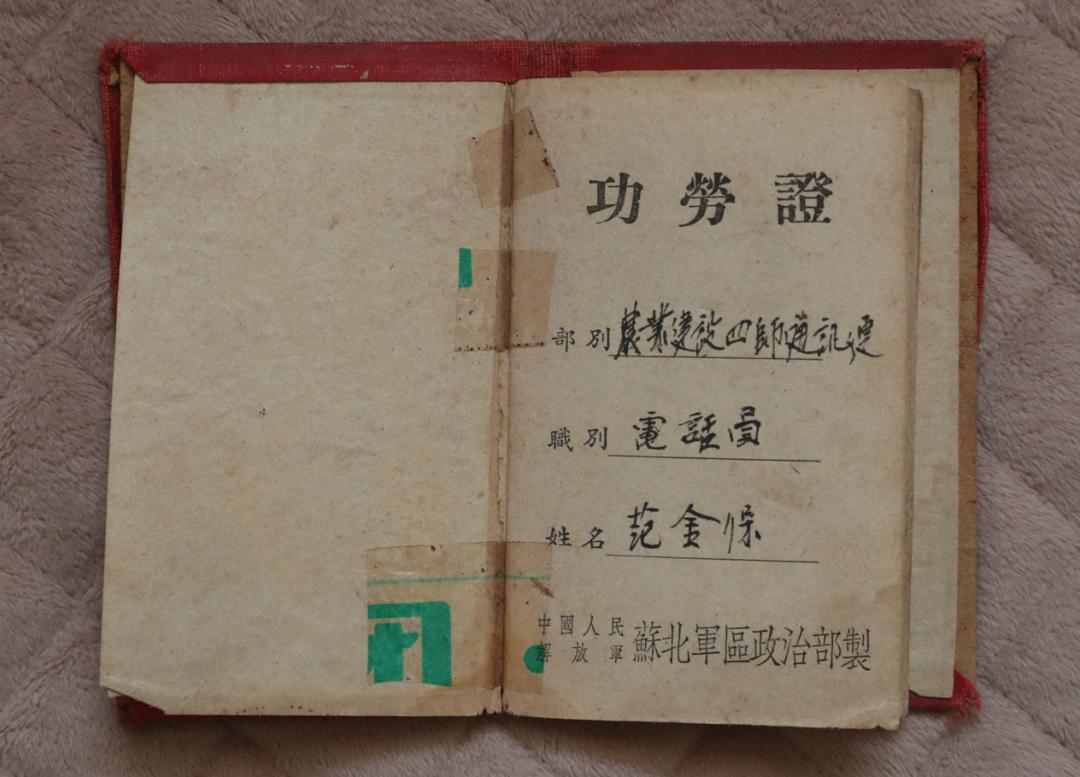 功勞證
部別 農業建設四師通訊連
職別 電話員
姓名 范金保
中國人民
解放軍 蘇北軍區政治部製